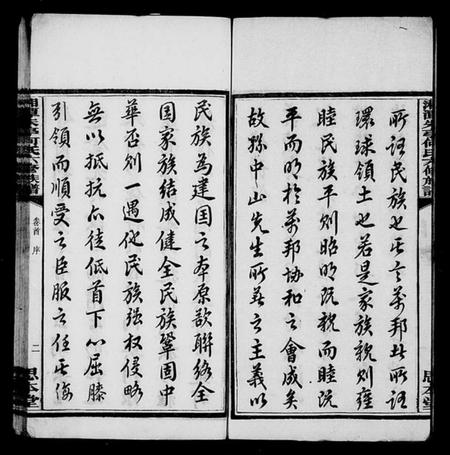 湘潭朱亭何氏六修族譜
所謂民族也其言萬邦此所謂
環球領土也若是家族親則雍
睦民族平則昭明既親而睦既
平而明於萬邦協和之會成矣
故孫中山先生所著之主義以
思本堂
民族為建國之本原欲聯絡全
國家族結成健全民族鞏固中
華否則一遇他民族強權侵略
無以抵抗亦徒低首下心屈膝
引領而順受之臣服之任其侮
湘潭朱亭何氏六修族譜
卷首 序
二
思本堂